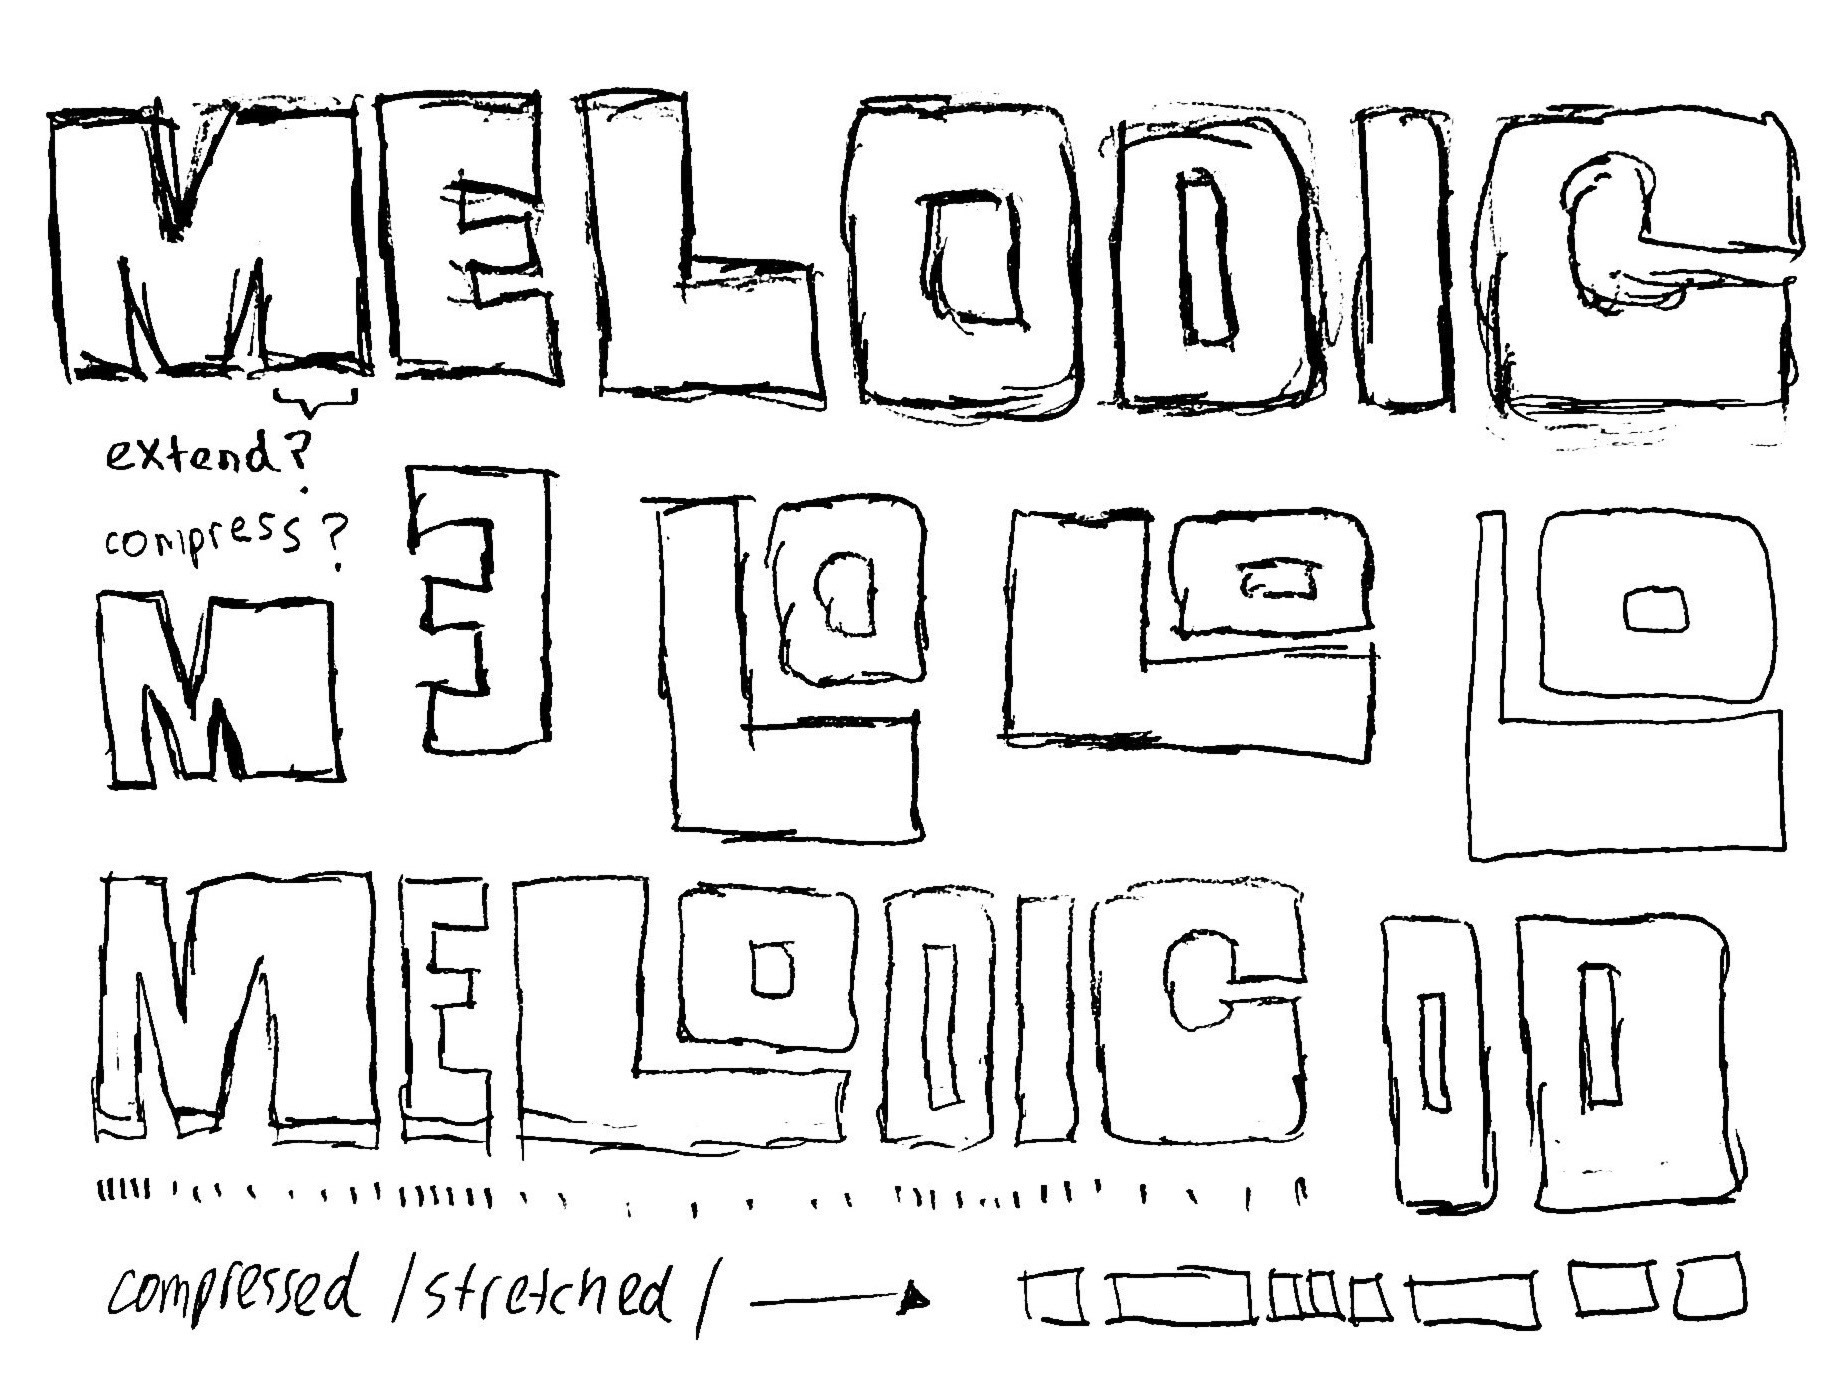 MELODIC
extend?
compress?
M E LO LO LO
MELODIC D D
compressed / stretched /